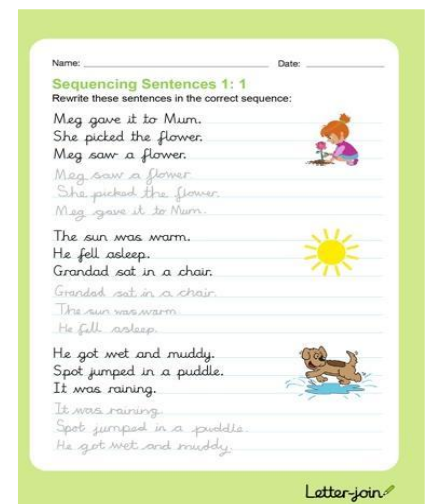 Name:
Date:
Sequencing Sentences 1: 1
Rewrite these sentences in the correct sequence:
Meg gave it to Mum.
She picked the flower.
Meg saw a flower.
Meg saw a flower
She picked the flower.
Meg gave it to Mum.
The sun was warm.
He fell asleep.
Grandad sat in a chair.
Grandad sat in a chair.
The sun was warm
He fell asleep.
He got wet and muddy.
Spot jumped in a puddle.
It was raining.
It was raining.
Spot jumped in a puddle.
He got wet and muddy.
Letter-join